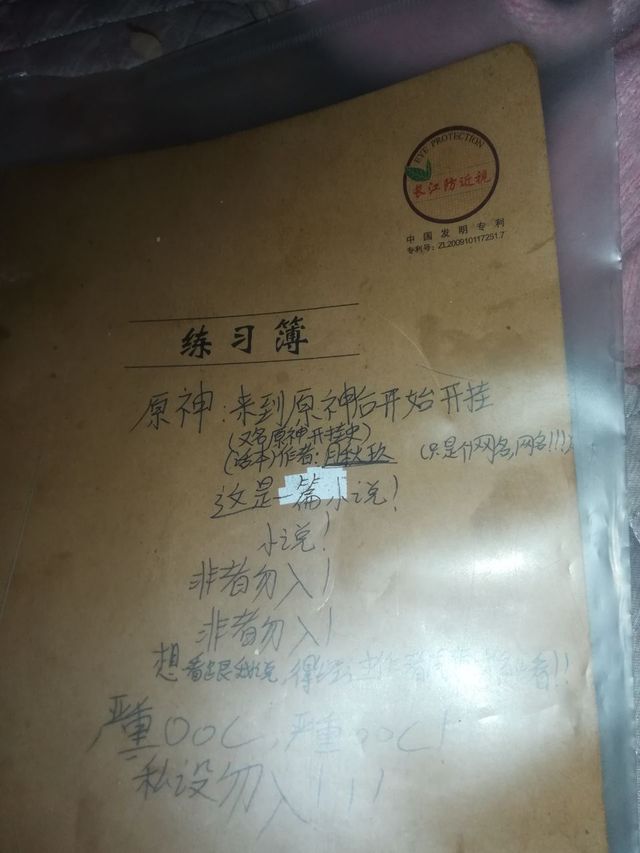 EYE PROTECTION
长江防近视
中国发明专利
专利号：ZL200910117251.7
练习簿
原神：来到原神后开始开挂
（又名原神开挂史）
（话本）作者：月秋玖 （只是个网名，网名！！！
这是一篇小说！
小说！
非者勿入！
非者勿入！
想看
看！！
严重OOC，严重OOC！
私设勿入！！！